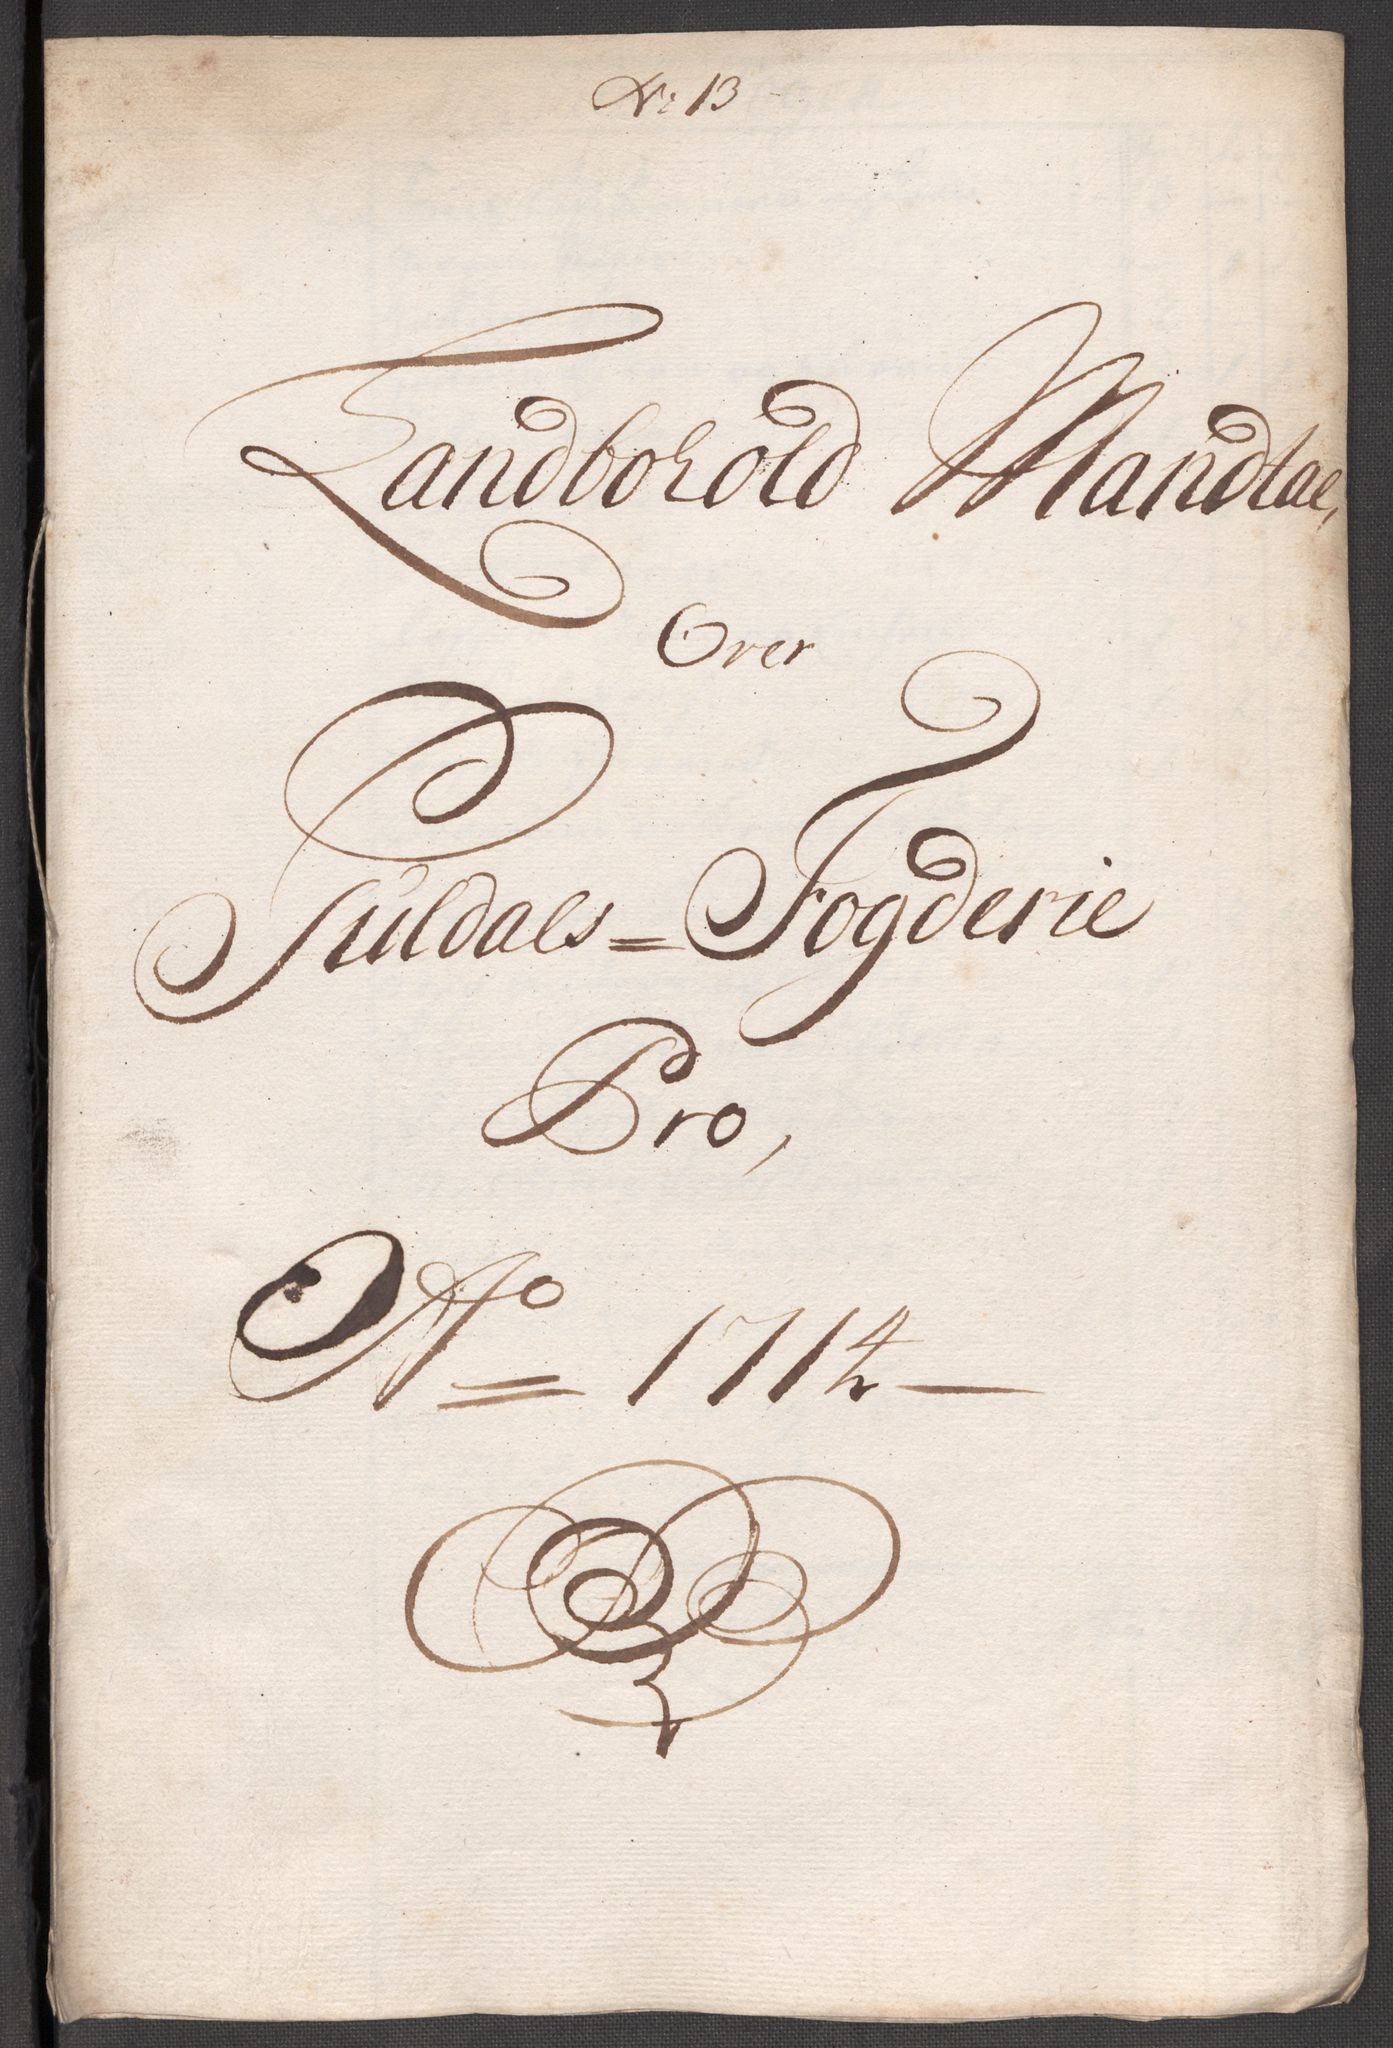 Nr 13
Landbohold Mandtal,
Over
Suldals = Fogderie
Pro,
Ao 1714